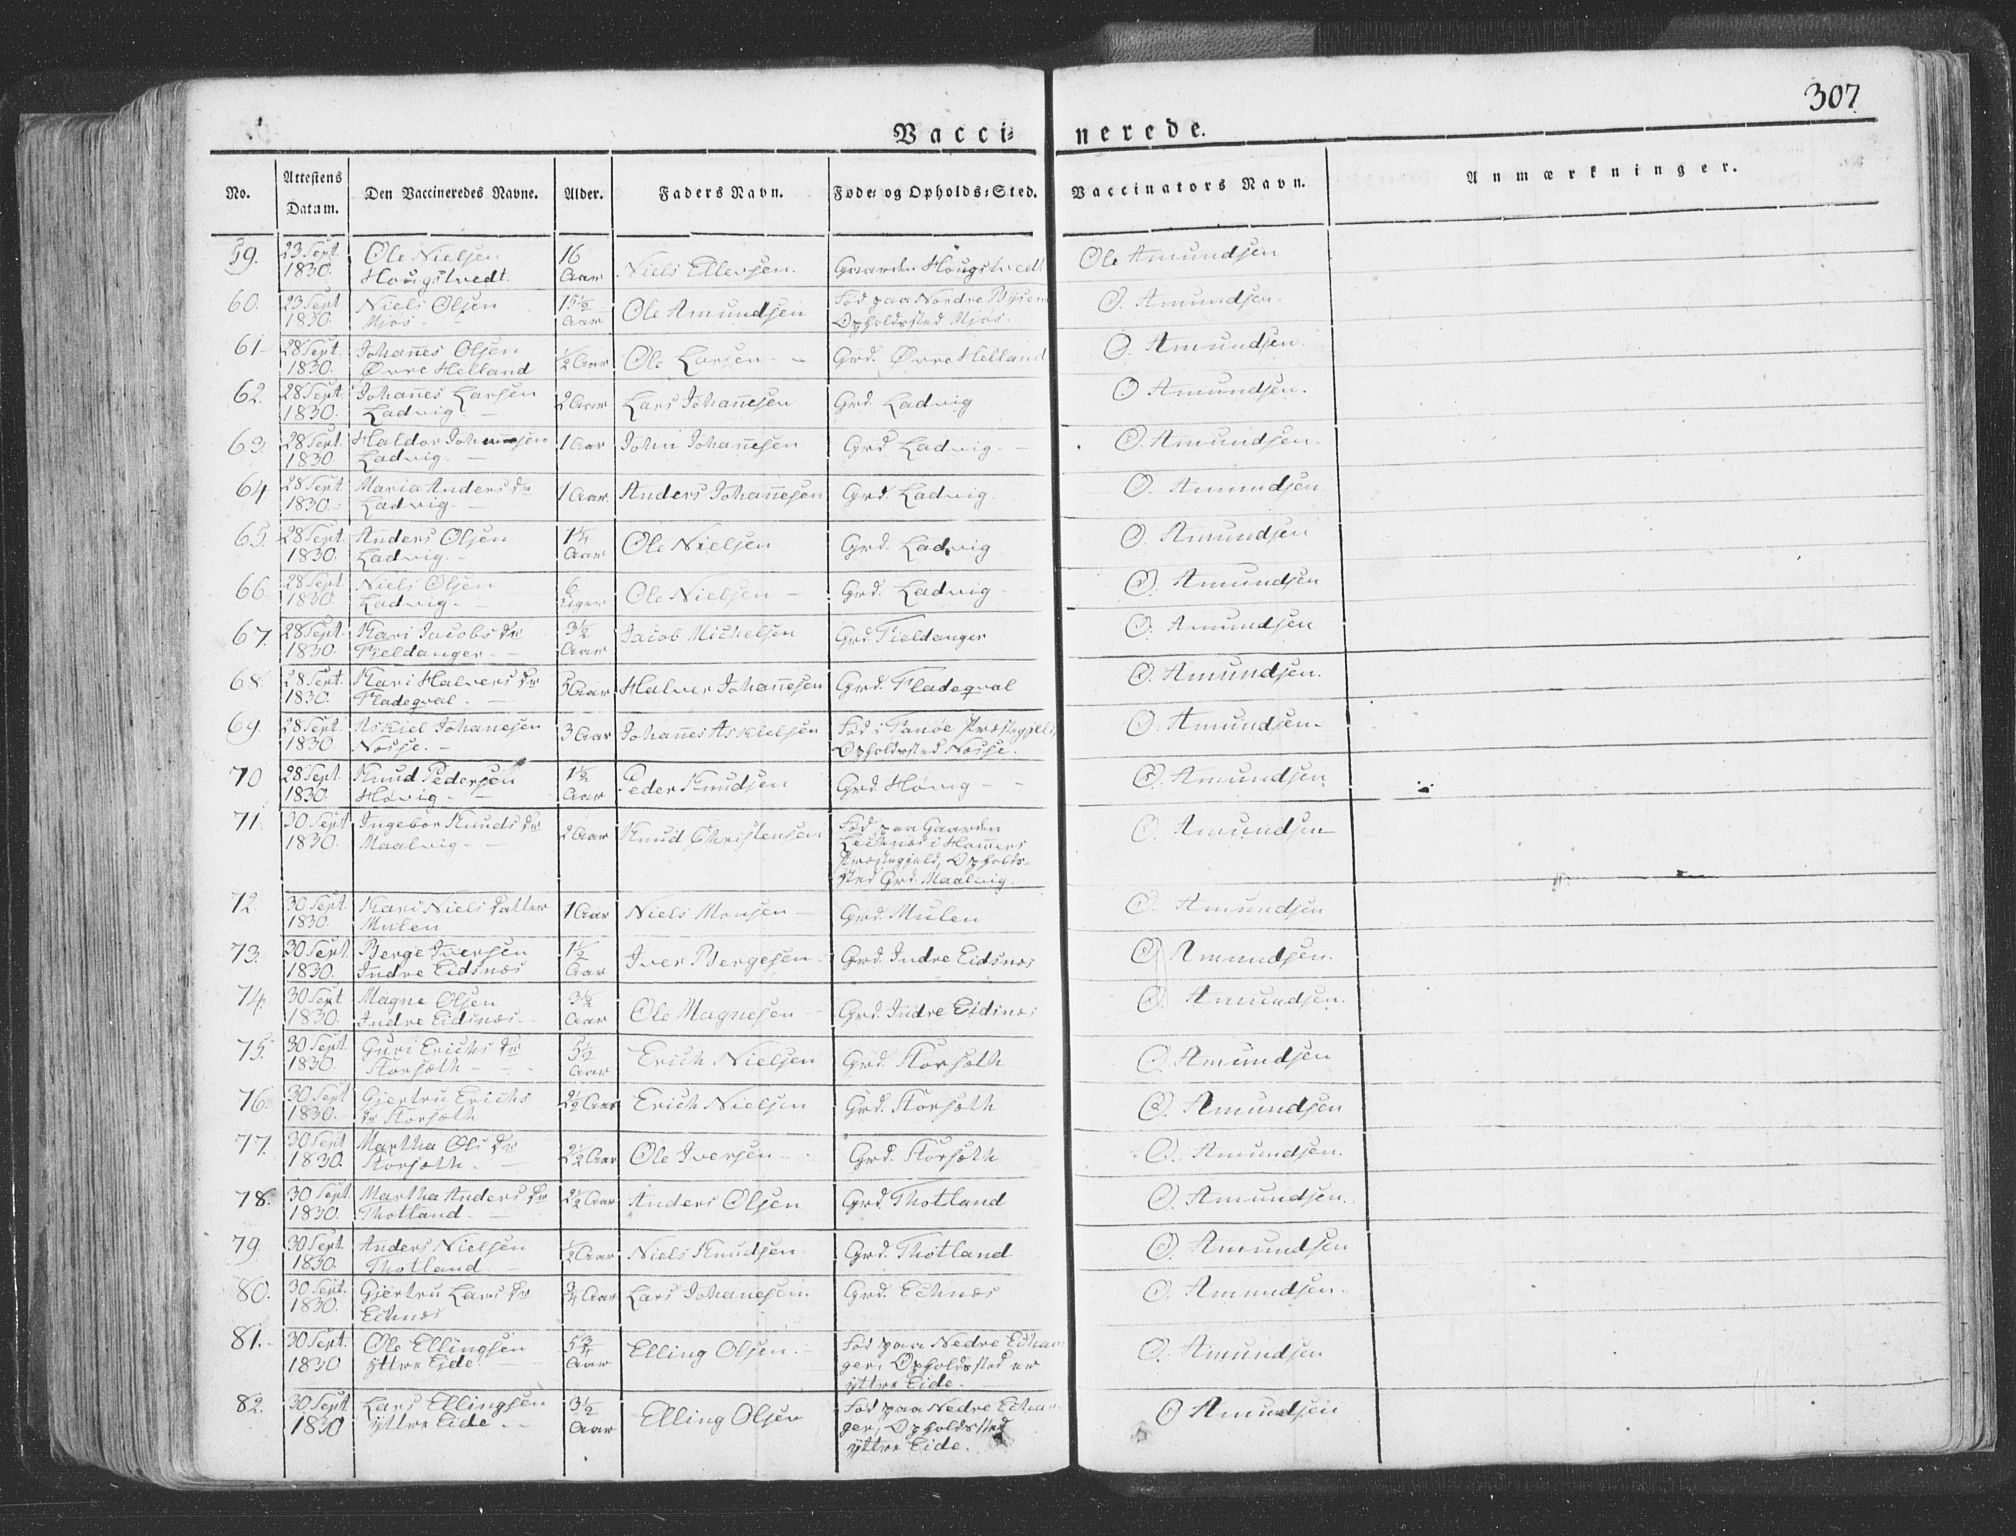 307
Vacci= nerede.
No. Attestens Datum. Den Vaccineredes Navne. Alder. Faders Navn. Føde= og Opholds=Sted. Vaccinators Navn. Anmærkninger.
59. 23 Sept. 1830. Ole Nielsen Hougstvedt. 16 Aar Niels Ellevsen. Gaarden Hougstvedt Ole Amundsen
60. 23 Sept 1830. Niels Olsen Mjøs. 1 5/12 Aar Ole Amundsen Fød paa Nordre Opholdssted Mjøs. O. Amundsen.
61 28 Sept. 1830. Johannes Olsen Øvre Helland 1/2 Aar Ole Larsen Grd. Øvre Helland O. Amundsen.
62. 28 Sept. 1830. Johannes Larsen Ladvig 2 Aar Lars Johannesen Grd. Ladvig O Amundsen.
63. 28 Sept. 1830 Haldor Johnsen Ladvig. 1 Aar John Johannesen Grd Ladvig. O. Amundsen.
64 28 Sept 1830. Maria Anders Dr Ladvig 1 Aar. Anders Johannesen Grd. Ladvig. O. Amundsen
65. 28 Sept. 1830. Anders Olsen Ladvig. 1 1/4 Aar Ole Nielsen Grd. Ladvig O. Amundsen
66. 28 Sept 1830. Niels Olsen Ladvig. 6 Uger Ole Nielsen Grd. Ladvig O. Amundsen
67. 28 Sept. 1830. Kari Jacobs Dr Fjeldanger 3 1/2 Aar Jacob Michelsen Grd. Fieldanger O. Amundsen
68. 28 Sept. 1830. Kari Halvers Dr Fladeqval. 5 Aar Halver Johannesen Grd. Fladeqval O. Amundsen.
69. 28 Sept. 1830 Askiel Johanesen Nosse. 3 Aar Johannes Askielsen Fød i Fanøe Præstegjeld, Opholdssted Nosse. O. Amundsen.
70 28 Sept. 1830. Knud Pedersen Høvig 1 1/2 Aar Peder Knudsen Grd. Høvig O. Amundsen
71. 30 Sept 1830. Ingebor Knuds Dr Maalvig 2 Aar Knud Christensen Fød paa Gaarden i Hammers Præstegjeld, Opholds=sted Grd. Maalvig. O. Amundsen
72. 30 Sept. 1830. Kari Niels Datter Mulen 1 Aar Niels Monsen Grd. Mulen O. Amundsen
73. 30 Sept. 1830. Berge Iversen Indre Eidsnæs 1 1/2 Aar Iver Bergesen. Grd. Indre Eidsnæs O. Amundsen.
74. 30 Sept 1830. Magne Olsen Indre Eidsnæs. 3 1/2 Aar Ole Magnesen Grd. Indre Eidsnæs O. Amundsen.
75. 30 Sept. 1830. Guri Erichs Dr Storsæth 5 1/2 Aar Erich Nielsen Grd. Storsæth O. Amundsen
76. 30 Sept 1830. Gjertru Erichs Dr Storsæth 2 1/2 Aar Erich Nielsen Grd. Storsæth O. Amundsen
77. 30 Sept 1830. Martha Ols Dr Storsæth. 2 1/2 Aar Ole Iversen Grd. Storsæth O. Amundsen.
78. 30 Sept. 1830. Martha Anders Dr Thotland. 2 1/2 Aar Anders Olsen Grd. Thotland O. Amundsen.
79. 30 Sept. 1830. Anders Nielsen Thotland. 1/2 Aar Niels Knudsen. Grd. Thotland O. Amundsen
80. 30 Sept. 1830. Gjertru Lars Dr Echnæs 3/4 Aar Lars Johanesen. Grd. Echnæs O. Amundsen.
81. 30 Sept. 1830 Ole Ellingsen yttre Eide. 5 3/4 Aar Elling Olsen. Fød paa Nedre Echanger, Opholdssted er yttre Eide. O. Amundsen
82. 30 Sept. 1830 Lars Ellingsen yttre Eide. 3 1/2 Aar Elling Olsen Fød paa Nedre Echanger, Opholdssted yttre Eide. O Amundsen